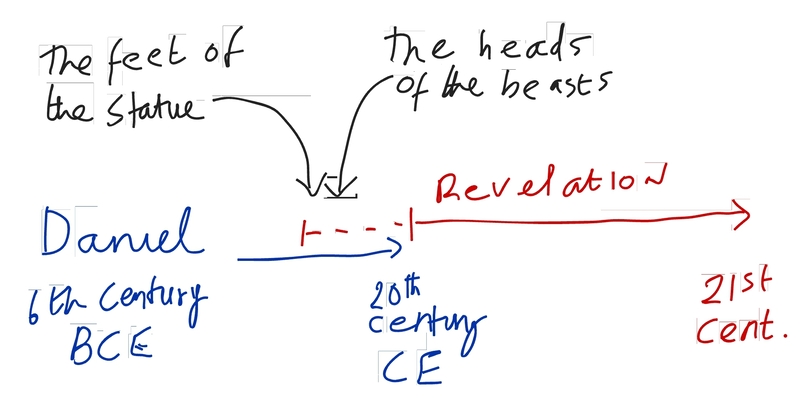 The feet of
the statue
the heads
of the beasts
Revelation
Daniel
6th Century
BCE
20th
century
CE
21st
cent.